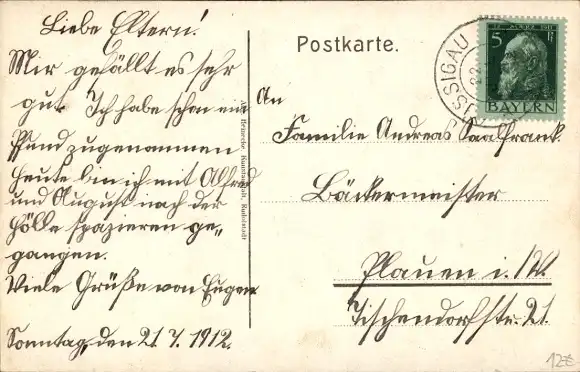 Liebe Eltern!
Mir gefällt es sehr
gut. Ich habe schon ein
Pfund zugenommen
Heute bin ich mit Alfred
und August nach der
Hölle spazieren ge„
gangen.
Viele Grüße von Eugen
Sonntag, den 21. 7. 1912.
Postkarte.
An
Familie Andreas Saalfrank.
Bäckermeister
Plauen i. /V.
Tischendorfstr. 21.
Heinecke, Kunstanstalt, Rudolstadt
SSIGAU
5 12. MÄRZ 1911 Pf
BAYERN
12€